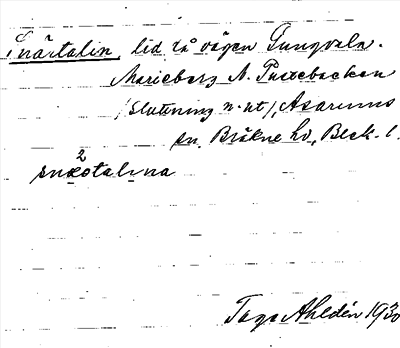 Snärtalin, lid på vägen Gungvala -
Marieberg N. Pustebacken
(sluttning n. ut), Asarums
sn, Bräkne hd, Blek. l.
Tage Ahldén 1930